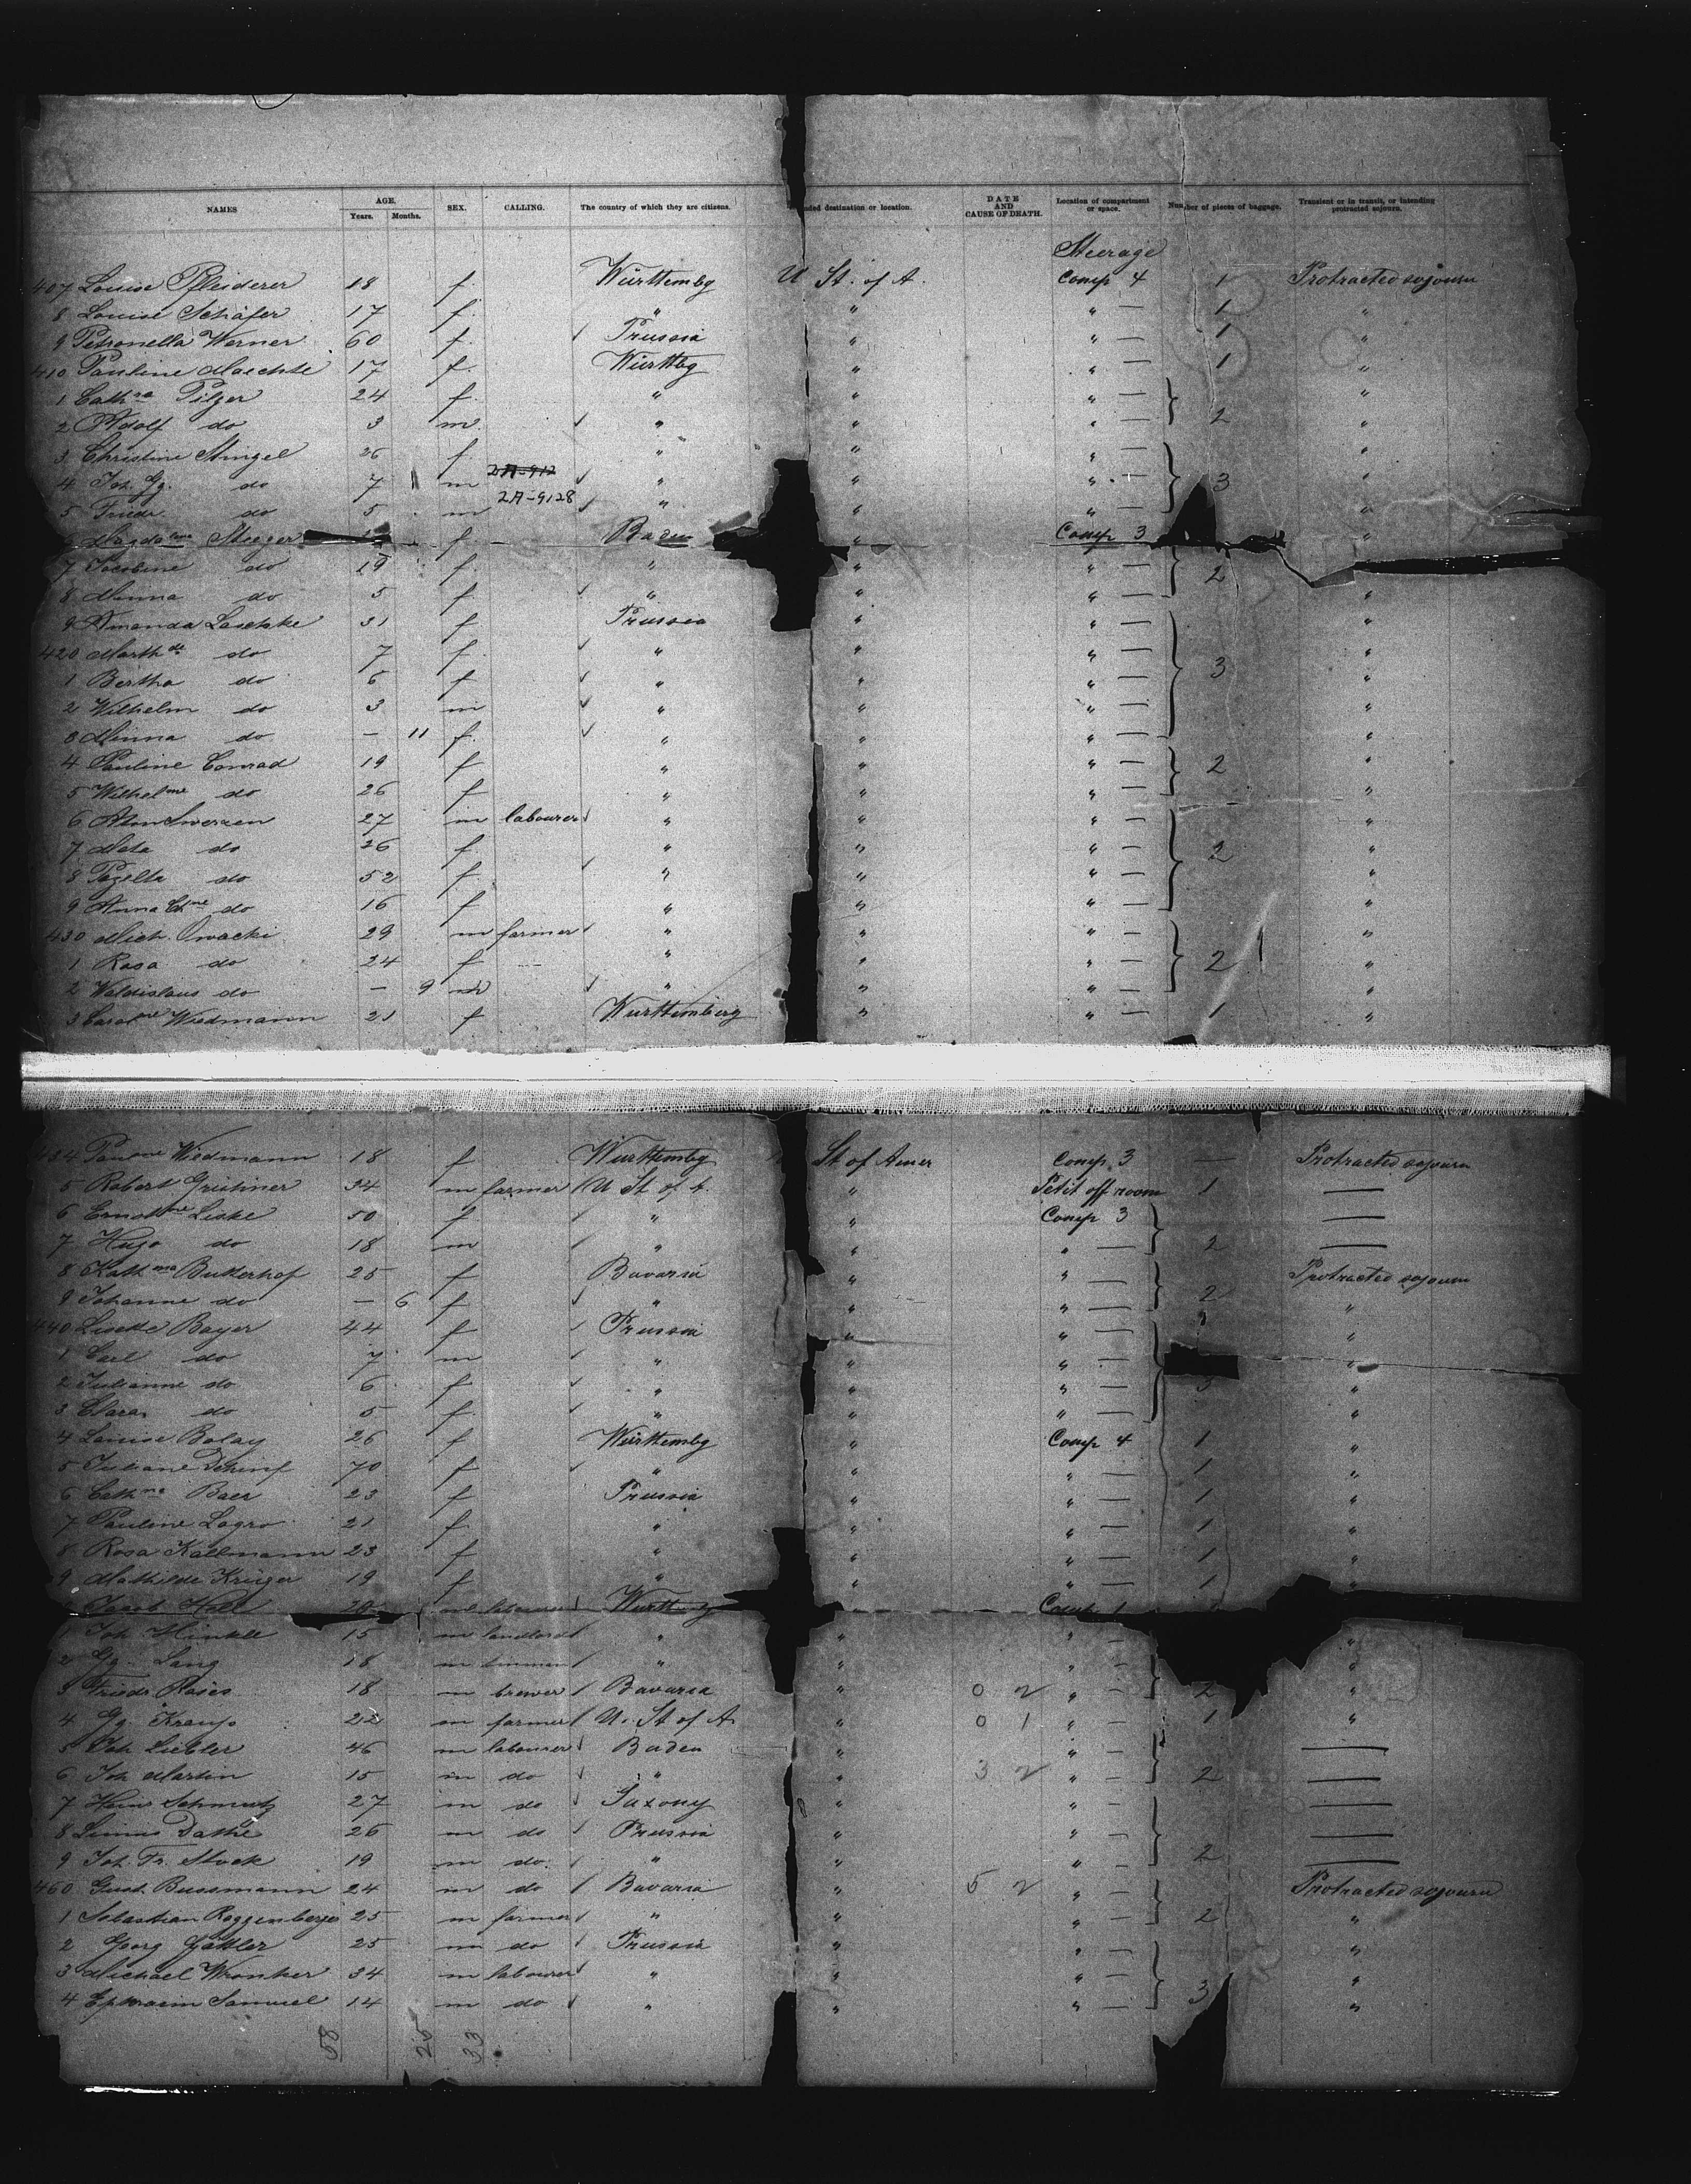 NAMES AGE. Years. Months. SEX. CALLING. The country of which they are citizens. nded destination or location. DATE AND CAUSE OF DEATH. Location of compartment or space. Number of pieces of baggage. Transient or in transit, or intending protracted sojourn.
Steerage
407 Louise Pfleiderer 18 f. Württembg U St. of A. Comp 4 1 Protracted sojourn
8 Louise Schäfer 17 f. " " " — 1 "
9 Petronella Werner 60 f. Prussia " " — 1 "
410 Pauline 17 f. Württbg " " — 1 "
1 Cathna Pilger 24 f. " " " — "
2 Adolf do 3 m. " " " — 2 "
3 Christine Stingel 26 f. " " " — "
2A-912
4 Joh. Gg. do 7 m " " " — 3 "
2A-9128
5 Friedr. do 5 m " " " — "
Magdalene Steeger f. Baden " Comp 3 "
7 Jacobine do 19 f. " " " — 2
8 Minna do 5 f. " " " — "
9 Amanda Laschke 31 f Prussia " " — "
420 Marthde do 7 f. " " " — 3 "
1 Bertha do 6 f " " " — "
2 Wilhelm do 3 m " " " — "
3 Minna do — 11 f. " " " — "
4 Pauline Conrad 19 f " " " — 2 "
5 Wilhelme do 26 f " " " — "
6 27 m labourer " " " — "
7 Meta do 26 f. " " " — 2 "
8 do 52 f. " " " — "
9 Anna do 16 f " " " — "
430 Mich. Owacki 29 m farmer " " " — "
1 Rosa do 24 f " " " — 2 "
2 Waldislaus do — 9 m " " " — "
3 Carolne Wiedmann 21 f Wurttemberg " " — 1 "
434 Paulne Wiedmann 18 f Wurttembg St of Amer Comp. 3 — Protracted sojourn
5 Robert 34 m farmer U St of A. " Petit off room 1 —
6 Ernestne Liske 50 f. " " Comp 3 —
7 Hugo do 18 m " " " — 2 —
8 Kathna Butterhof 25 f Bavaria " " — Protracted sojourn
9 Johanne do — 6 f " " " — 2 "
440 Lisette Bayer 44 f Prussia " " — "
1 Carl do 7 m " " " — "
2 Julianne do 6 f " " " — "
3 Clara do 5 f. " " " — "
4 Louise Bolay 26 f Württembg " Comp 4 1 "
5 Juliane 70 f " " " — 1 "
6 Cathna Baer 23 f Prussia " " — 1 "
7 Pauline Lagro 21 f " " " — 1 "
8 Rosa Kallmann 23 f " " " — 1 "
9 Mathilde Krüger 19 f " " " — 1 "
Jacob m labourer Württbg " Comp 1
1 Joh. Hinkle 15 m landlord " " " — "
2 Gg. Lang 18 m " " " — "
3 Friedr. 18 m brewer Bavaria " 0 2 " — 2 "
4 Gg. 22 m farmer U. St of A. " 0 1 " — 1 "
5 Joh Liebler 46 m labourer Baden " " — —
6 Joh Martin 15 m do " " 3 2 " — 2 —
7 Heinr. Schmutz 27 m do Saxony " " — —
8 Dathe 26 m do Prussia " " — —
9 Joh. Fr. Stock 19 m do " " " — 2 —
460 Gust. Bussmann 24 m do Bavaria " 5 2 " — Protracted sojourn
1 Sebastian Roggenberger 25 m farmer " " " — 2 "
2 Georg 25 m do Prussia " " — "
3 Michael Wronker 34 m labourer " " " — "
4 Ephraim Samuel 14 m do " " " — 3 "
58 25 33